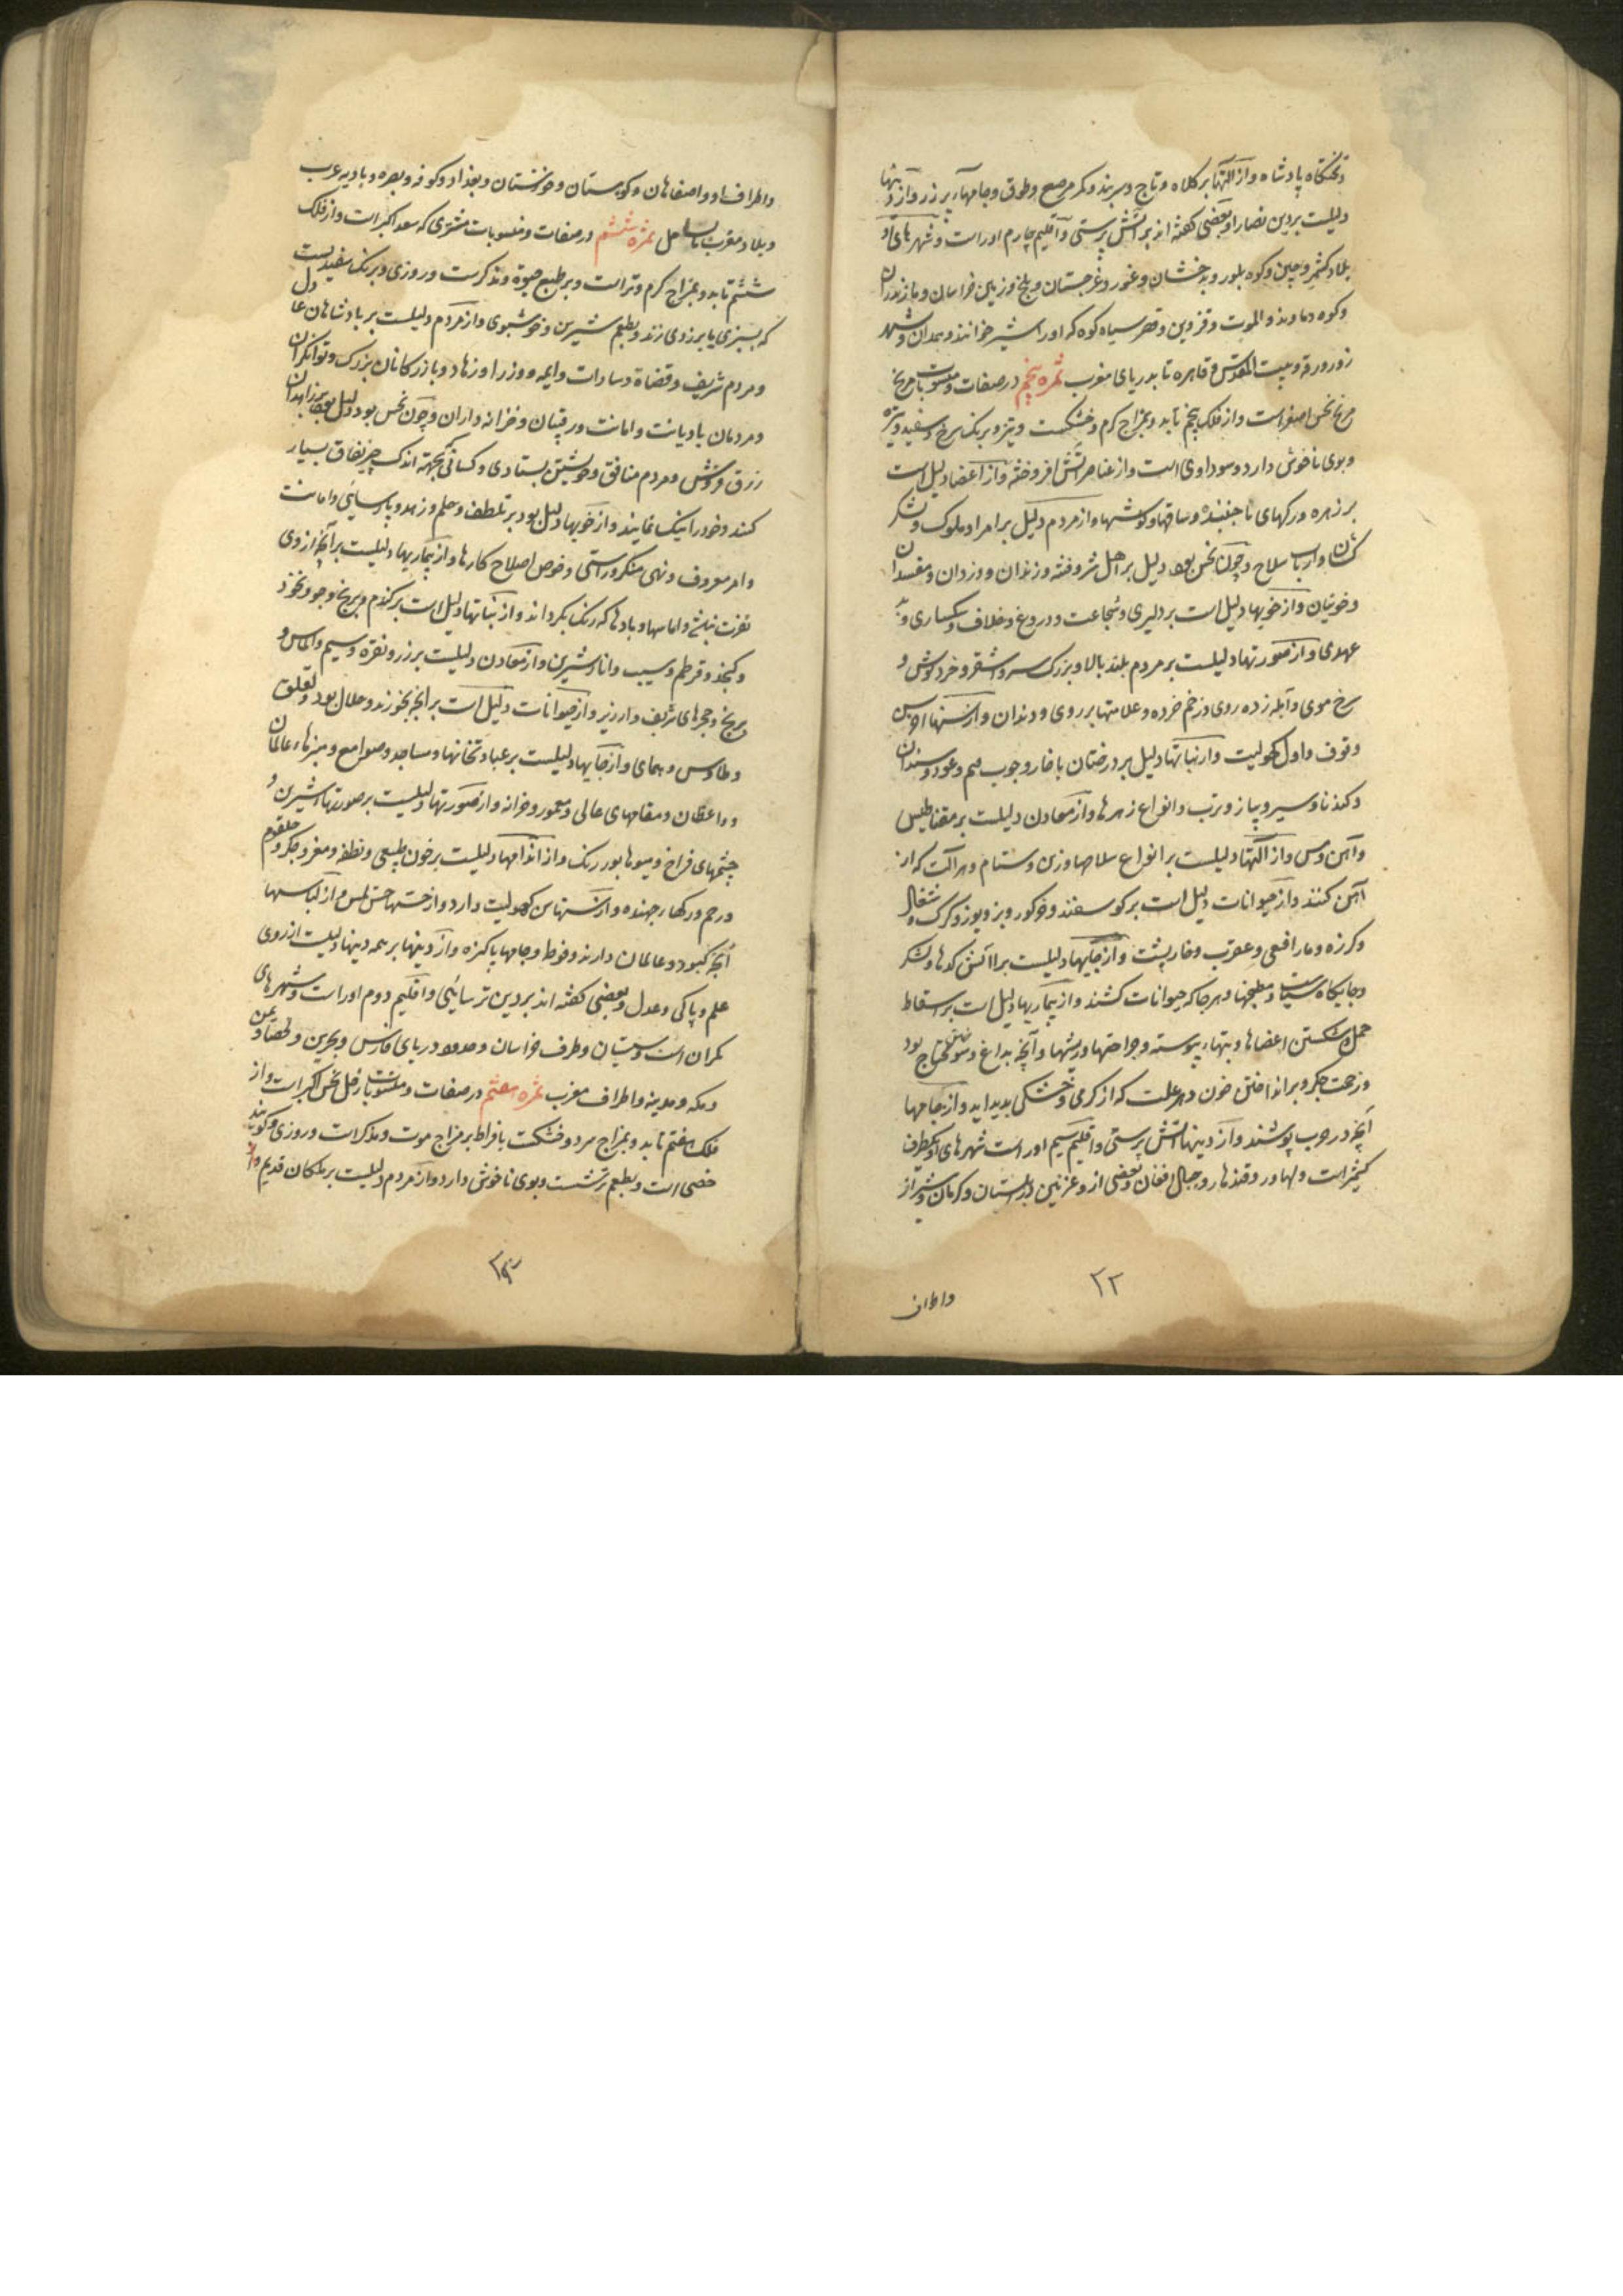 و تختگاه پادشاه و از آلتها بر کلاه و تاج و سربند و کمر مرصع و طوق و جامهاء پر زر و از دینها
دلیلست بر دین نصارا و بعضی گفته اند بر آتش پرستی و اقلیم چارم اوراست و شهرهای او
بلاد کشمیر و چین و کوه بلور و بدخشان و غور و غرجستان و بلخ و زمین خراسان و مازندران
و کوه دماوند و الموت و قزوین و قصر سیاه کوه که اورا شیر خوانند و همدان و شهر
زورورقه و بیت المقدس و قاهره تا بدریای مغرب ثمره پنجم در صفات و منسوبات مریخ
مریخ نحس اصغر است و از فلک پنجم تابد و بمزاج گرم و خشکست و تیز و برنک سرخ و سفید و تیره
و بوی ناخوش دارد و سوداوی است و از عناصر آتش افروخته و از اعضا دلیل است
بر زهره و رکهای نا جنبنده و ساقها و کوشها و از مردم دلیل بر امرا و ملوک و لشکر
کشان و ارباب سلاح و چون نحس بود دلیل بر اهل شر و فتنه و رندان و دزدان و مفسدان
و خونیان و از خویها دلیل است بر دلیری و شجاعت و دروغ و خلاف و سبکساری و بد
عهدی و از صورتها دلیلست بر مردم بلند بالا و بزرک سر و اشقر و خرد کوش و
سرخ موی و آبله زده روی و زخم خرده و علامتها بر روی و دندان و از سنها
وقوف و اول کهولیت و از نباتها دلیل بر درختان با خار و چوب و عود و سندان
و کندنا و سیر و پیاز و ترب و انواع زهرها و از معادن دلیلست بر مقناطیس
و آهن و مس و از آلتها دلیلست بر انواع سلاحها و زین و ستام و هر آلت که از
آهن کنند و از حیوانات دلیل است بر کوسفند و خوکور و بز و یوز و کرک و شغال
و کرزه و مار افعی و عقرب و خارپشت و از جایها دلیلست بر آتش کدها و لشکر
و جایکاه سیاست و مطبخها و هر جا که حیوانات کشند و از بیماریها دلیل است بر اسقاط
حمل و شکستن اعضاها و تبهاء پیوسته و جراحتها و ریشها و آنچه بداغ و سوختن محتاج بود
و زحمت جکر و بر انداختن خون و هر علت که از کرمی و خشکی بدید اید و از جامها
آنچه در حرب پوشند و از دینها آتش پرستی و اقلیم سیم اوراست شهرهای او یکطرف
کشمیر است و لهاور و قندهار و جبال افغان و بعضی از و غزنین و زابلستان و کرمان و شیراز
۲۲
و اطراف
و اطراف او و اصفاهان و کوهستان و خوزستان و بغداد و کوفه و بصره و بادیه عرب
و بلاد مغرب تا ساحل ثمره ششم در صفات و منسوبات مشتری که سعد اکبر است و از فلک
ششم تابد و بمزاج کرم و تر است و بر طبع حیوة و مذکرست و روزی و برنک سفیدیست
که بسبزی یا بزردی زند و بطعم شیرین و خوشبوی و از مردم دلیلست بر پادشاهان عادل
و مردم شریف و قضاة و سادات و ایمه و وزرا و زهاد و بازرکانان بزرک و توانکران
و مردمان با دیانت و امانت و رقیبان و خزانه داران و چون نحس بود دلیل بود بر زاهدان
زرق فروش و مردم منافق و خویشتن بستای و کسانی که بجهة اندک چیز نفاق بسیار
کنند و خود را نیک نمایند و از خویها دلیل بود بر تلطف و حلم و زهد و پارسائی و امانت
و امر معروف و نهی منکر و راستی و خوص اصلاح کارها و از بیماریها دلیلست بر آنچه از وی
و اماسها و بادها که رنک بکرداند و از نباتها دلیل است بر کندم و برنج و جو و نخود
و کنجد و قرطم و سیب و انار شیرین و از معادن دلیلست بر زر و نقره و سیم و الماس و
برنج و حجرهای شریف و ارزیز و از حیوانات دلیل است بر آنچه بخورند و حلال بود و لقلق
و طاوس و همای و از جایها دلیلست بر عبادتخانها و مساجد و صوامع و منبرهاء عالمان
و واعظان و مقامهای عالی و معمور و خزانه و از صورتها دلیلست بر صورتهاء شیرین و
چشمهای فراخ و میوها بور رنک و از اندامها دلیلست بر خون طبیعی و نطفه و مغز و جکر و حلقوم
و رحم و رکهاء جهنده و از سنها سن کهولیت دارد و از حسها حس لمس و از لباسها
آنچه کبود و عالمان دارند و فوط و جامها پاکیزه و از دینها بر همه دینها دلیلست از روی
علم و پاکی و عدل و بعضی کفته اند بر دین ترسائی و اقلیم دوم اوراست و شهرهای
مکران است و سیستان و طرف خراسان و حدود دریای فارس و بحرین و لحصا و یمن
و مکه و مدینه و اطراف مغرب ثمره هفتم در صفات و منسوبات زحل نحس اکبر است و از
فلک هفتم تابد و بمزاج سرد و خشکست بافراط بر مزاج موت و مذکر است و روزی و کویند
خصی است و بطعم ترشست و بوی ناخوش دارد و از مردم دلیلست بر ملکان قدیم و از